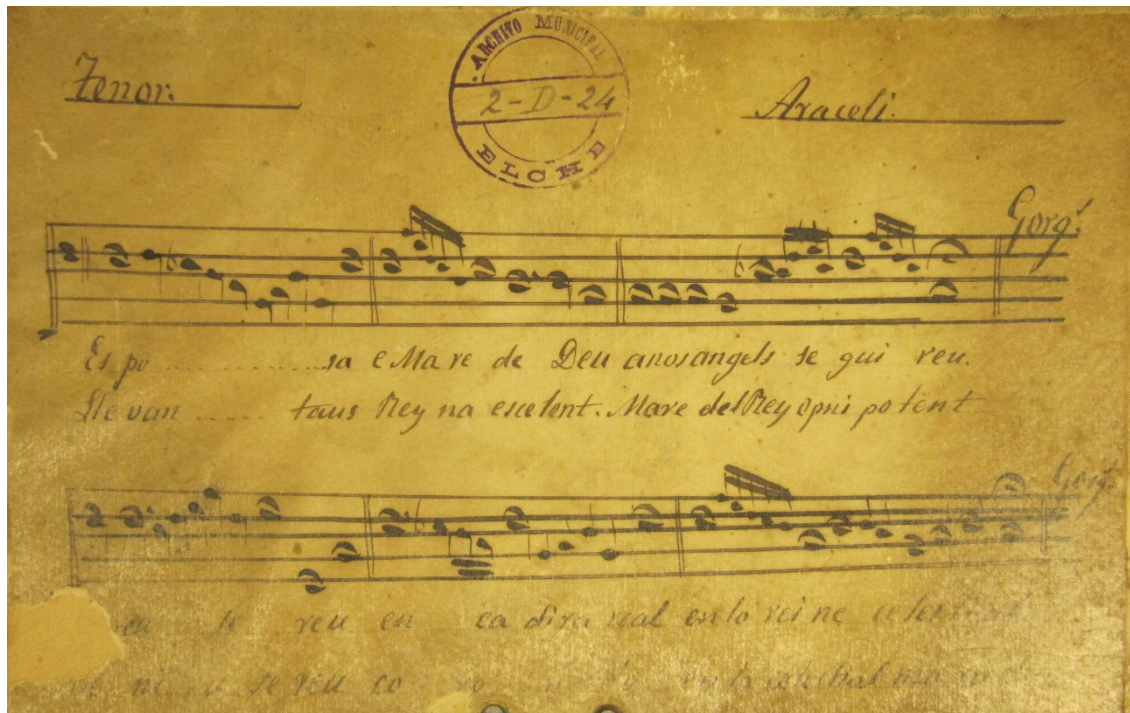 Tenor.
ARCHIVO MUNICIPAL
2-D-24
ELCHE
Araceli.
Gorg.ˢ
Es po ......... sa e Mare de Deu anosangels se gui reu.
Lle van ...... taus Reyna escelent. Mare del Rey opni potent
Gorg.ˢ
se reu en ca dira real en lo rei ne celestial
se reu co celestial